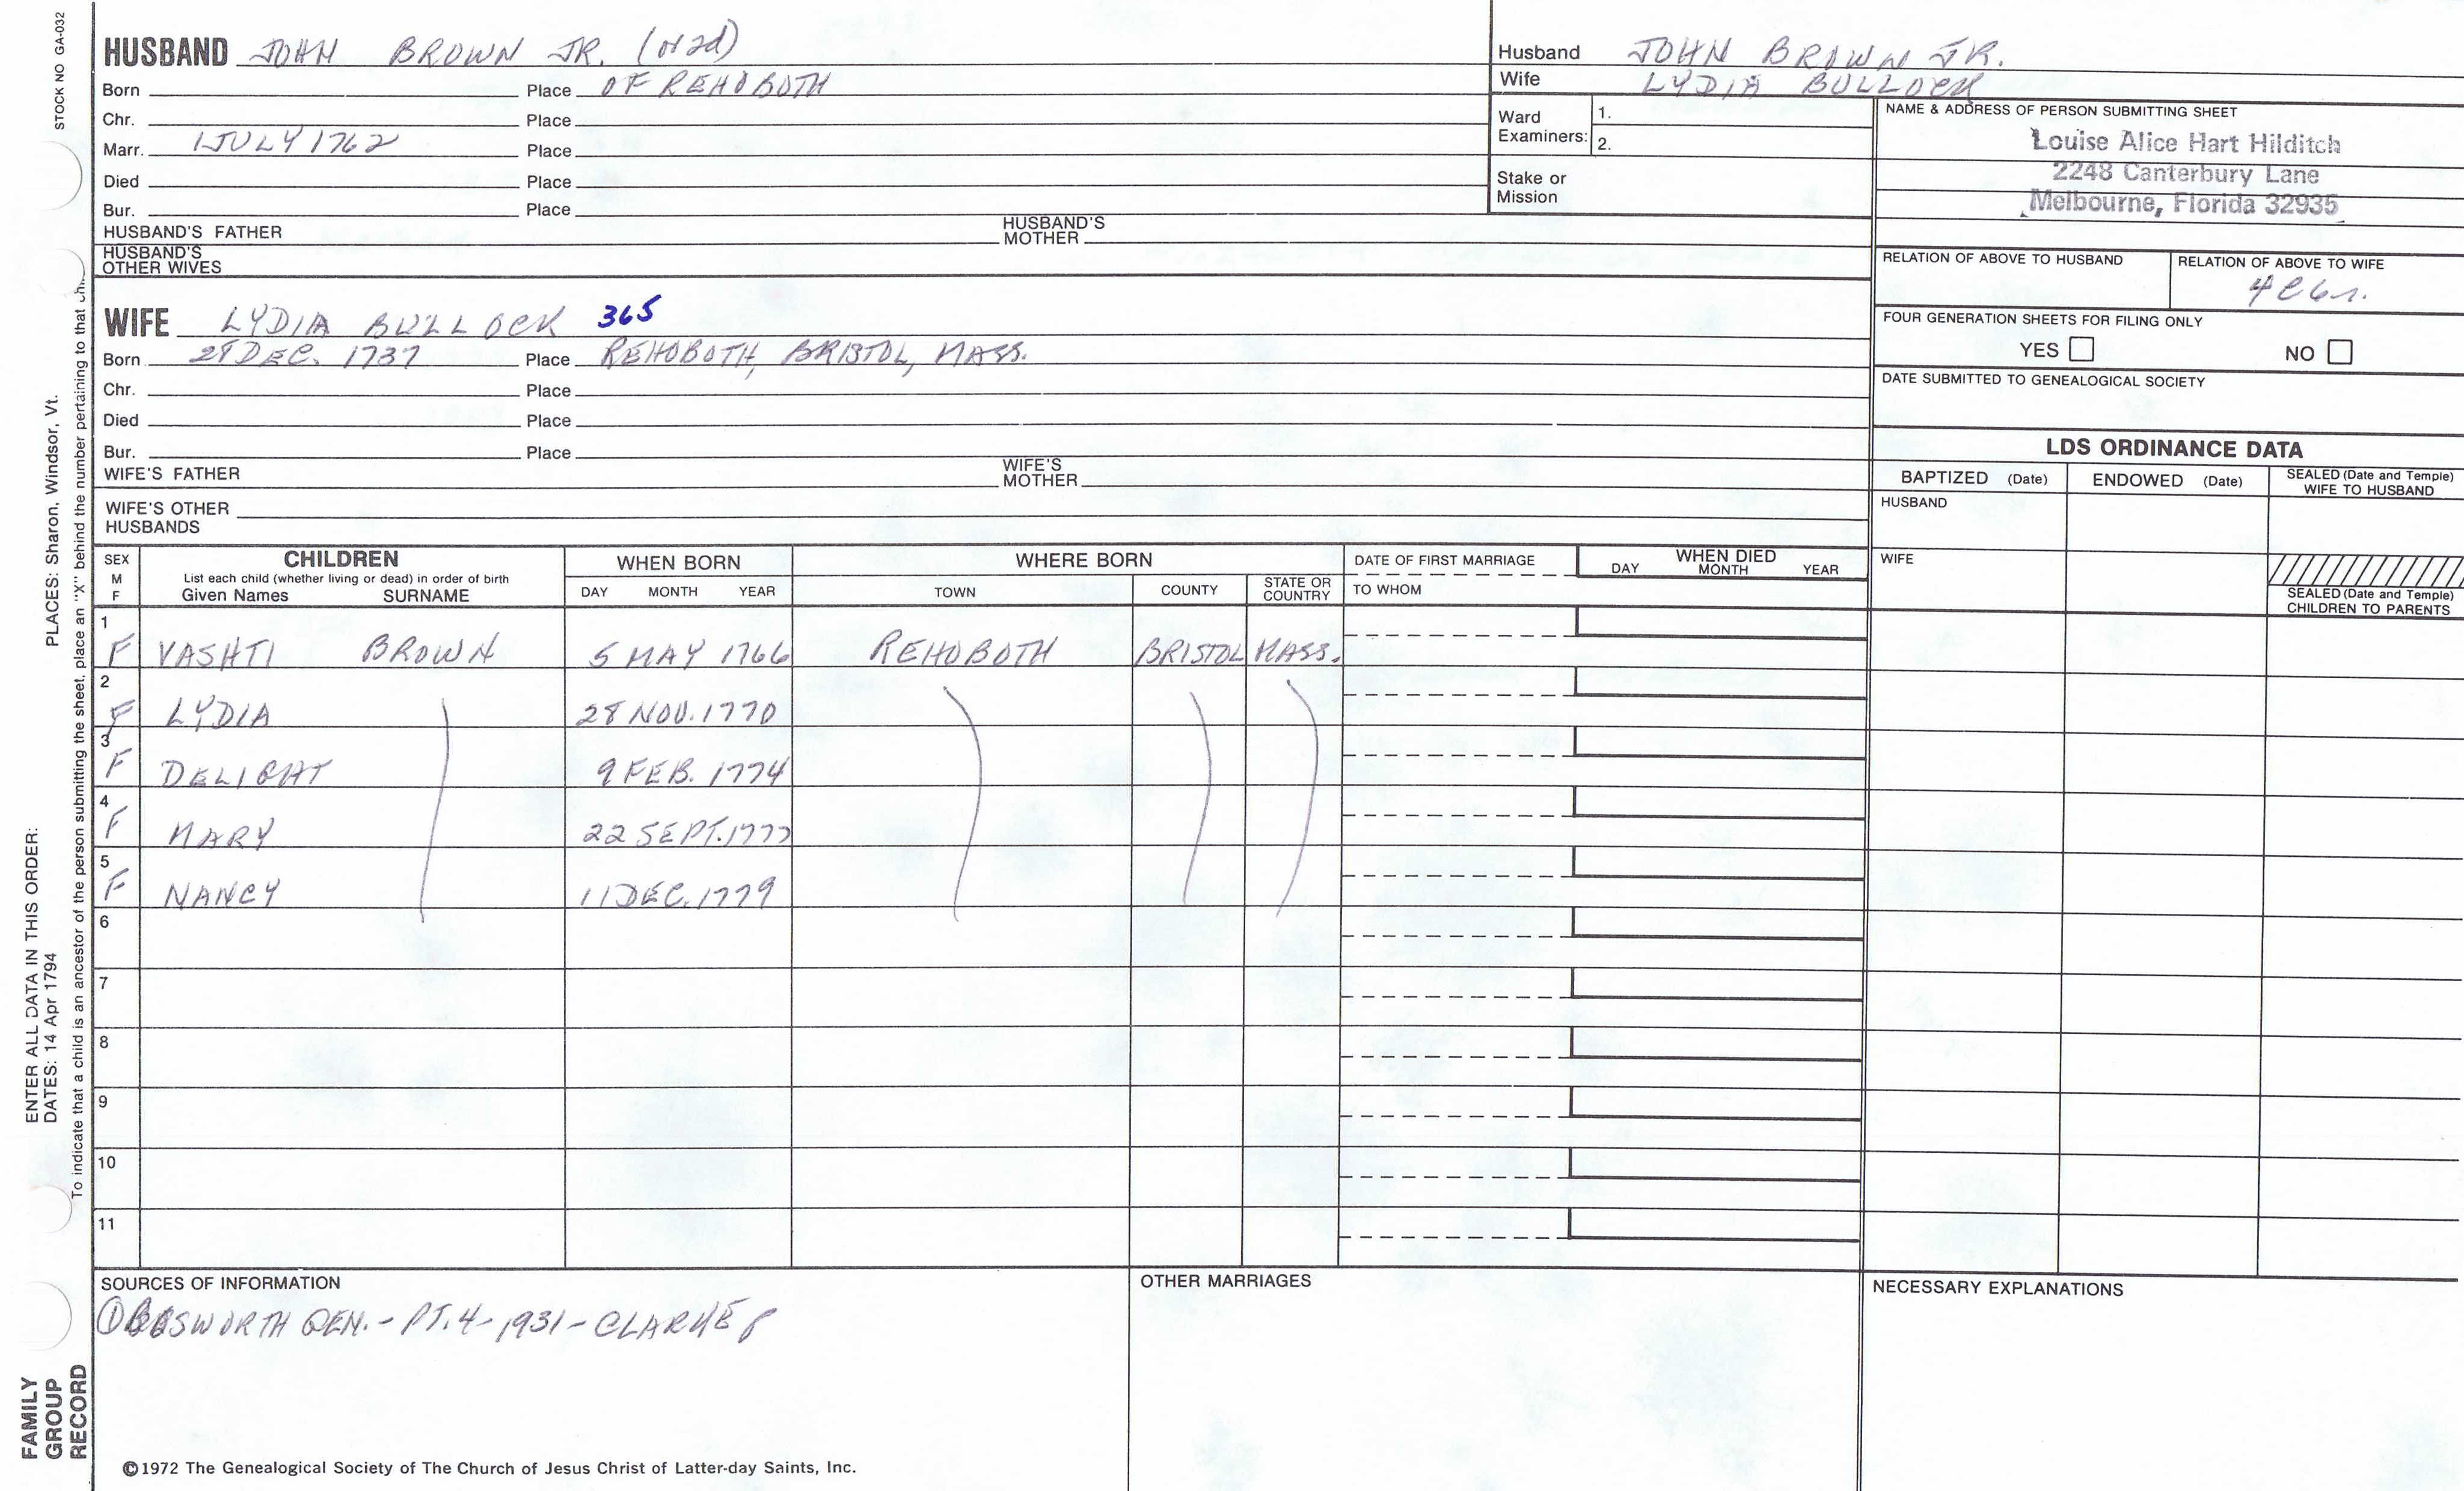 STOCK NO GA-032
HUSBAND JOHN BROWN JR. (or 2d)
Born Place OF REHOBOTH
Chr. Place
Marr. 1 JULY 1762 Place
Died Place
Bur. Place
HUSBAND'S FATHER HUSBAND'S MOTHER
HUSBAND'S OTHER WIVES
Husband JOHN BROWN JR.
Wife LYDIA BULLOCK
Ward Examiners: 1.
2.
Stake or Mission
NAME & ADDRESS OF PERSON SUBMITTING SHEET
Louise Alice Hart Hilditch
2248 Canterbury Lane
Melbourne, Florida 32935
RELATION OF ABOVE TO HUSBAND RELATION OF ABOVE TO WIFE
FOUR GENERATION SHEETS FOR FILING ONLY
YES NO
DATE SUBMITTED TO GENEALOGICAL SOCIETY
WIFE LYDIA BULLOCK 365
Born 28 DEC. 1737 Place REHOBOTH, BRISTOL, MASS.
Chr. Place
Died Place
Bur. Place
WIFE'S FATHER WIFE'S MOTHER
WIFE'S OTHER HUSBANDS
LDS ORDINANCE DATA
BAPTIZED (Date) ENDOWED (Date) SEALED (Date and Temple) WIFE TO HUSBAND
HUSBAND
WIFE
SEALED (Date and Temple) CHILDREN TO PARENTS
SEX M F CHILDREN
List each child (whether living or dead) in order of birth
Given Names SURNAME
WHEN BORN
DAY MONTH YEAR
WHERE BORN
TOWN COUNTY STATE OR COUNTRY
DATE OF FIRST MARRIAGE
TO WHOM
WHEN DIED
DAY MONTH YEAR
1 F VASHTI BROWN 5 MAY 1766 REHOBOTH BRISTOL MASS.
2 F LYDIA 28 NOV. 1770
3 F DELIGHT 9 FEB. 1774
4 F MARY 22 SEPT. 1777
5 F NANCY 11 DEC. 1779
6
7
8
9
10
11
SOURCES OF INFORMATION
① BOSWORTH GEN. - PT. 4 - 1931 - CLARKE p
OTHER MARRIAGES
NECESSARY EXPLANATIONS
©1972 The Genealogical Society of The Church of Jesus Christ of Latter-day Saints, Inc.
FAMILY GROUP RECORD
ENTER ALL DATA IN THIS ORDER:
DATES: 14 Apr 1794 PLACES: Sharon, Windsor, Vt.
To indicate that a child is an ancestor of the person submitting the sheet, place an "X" behind the number pertaining to that